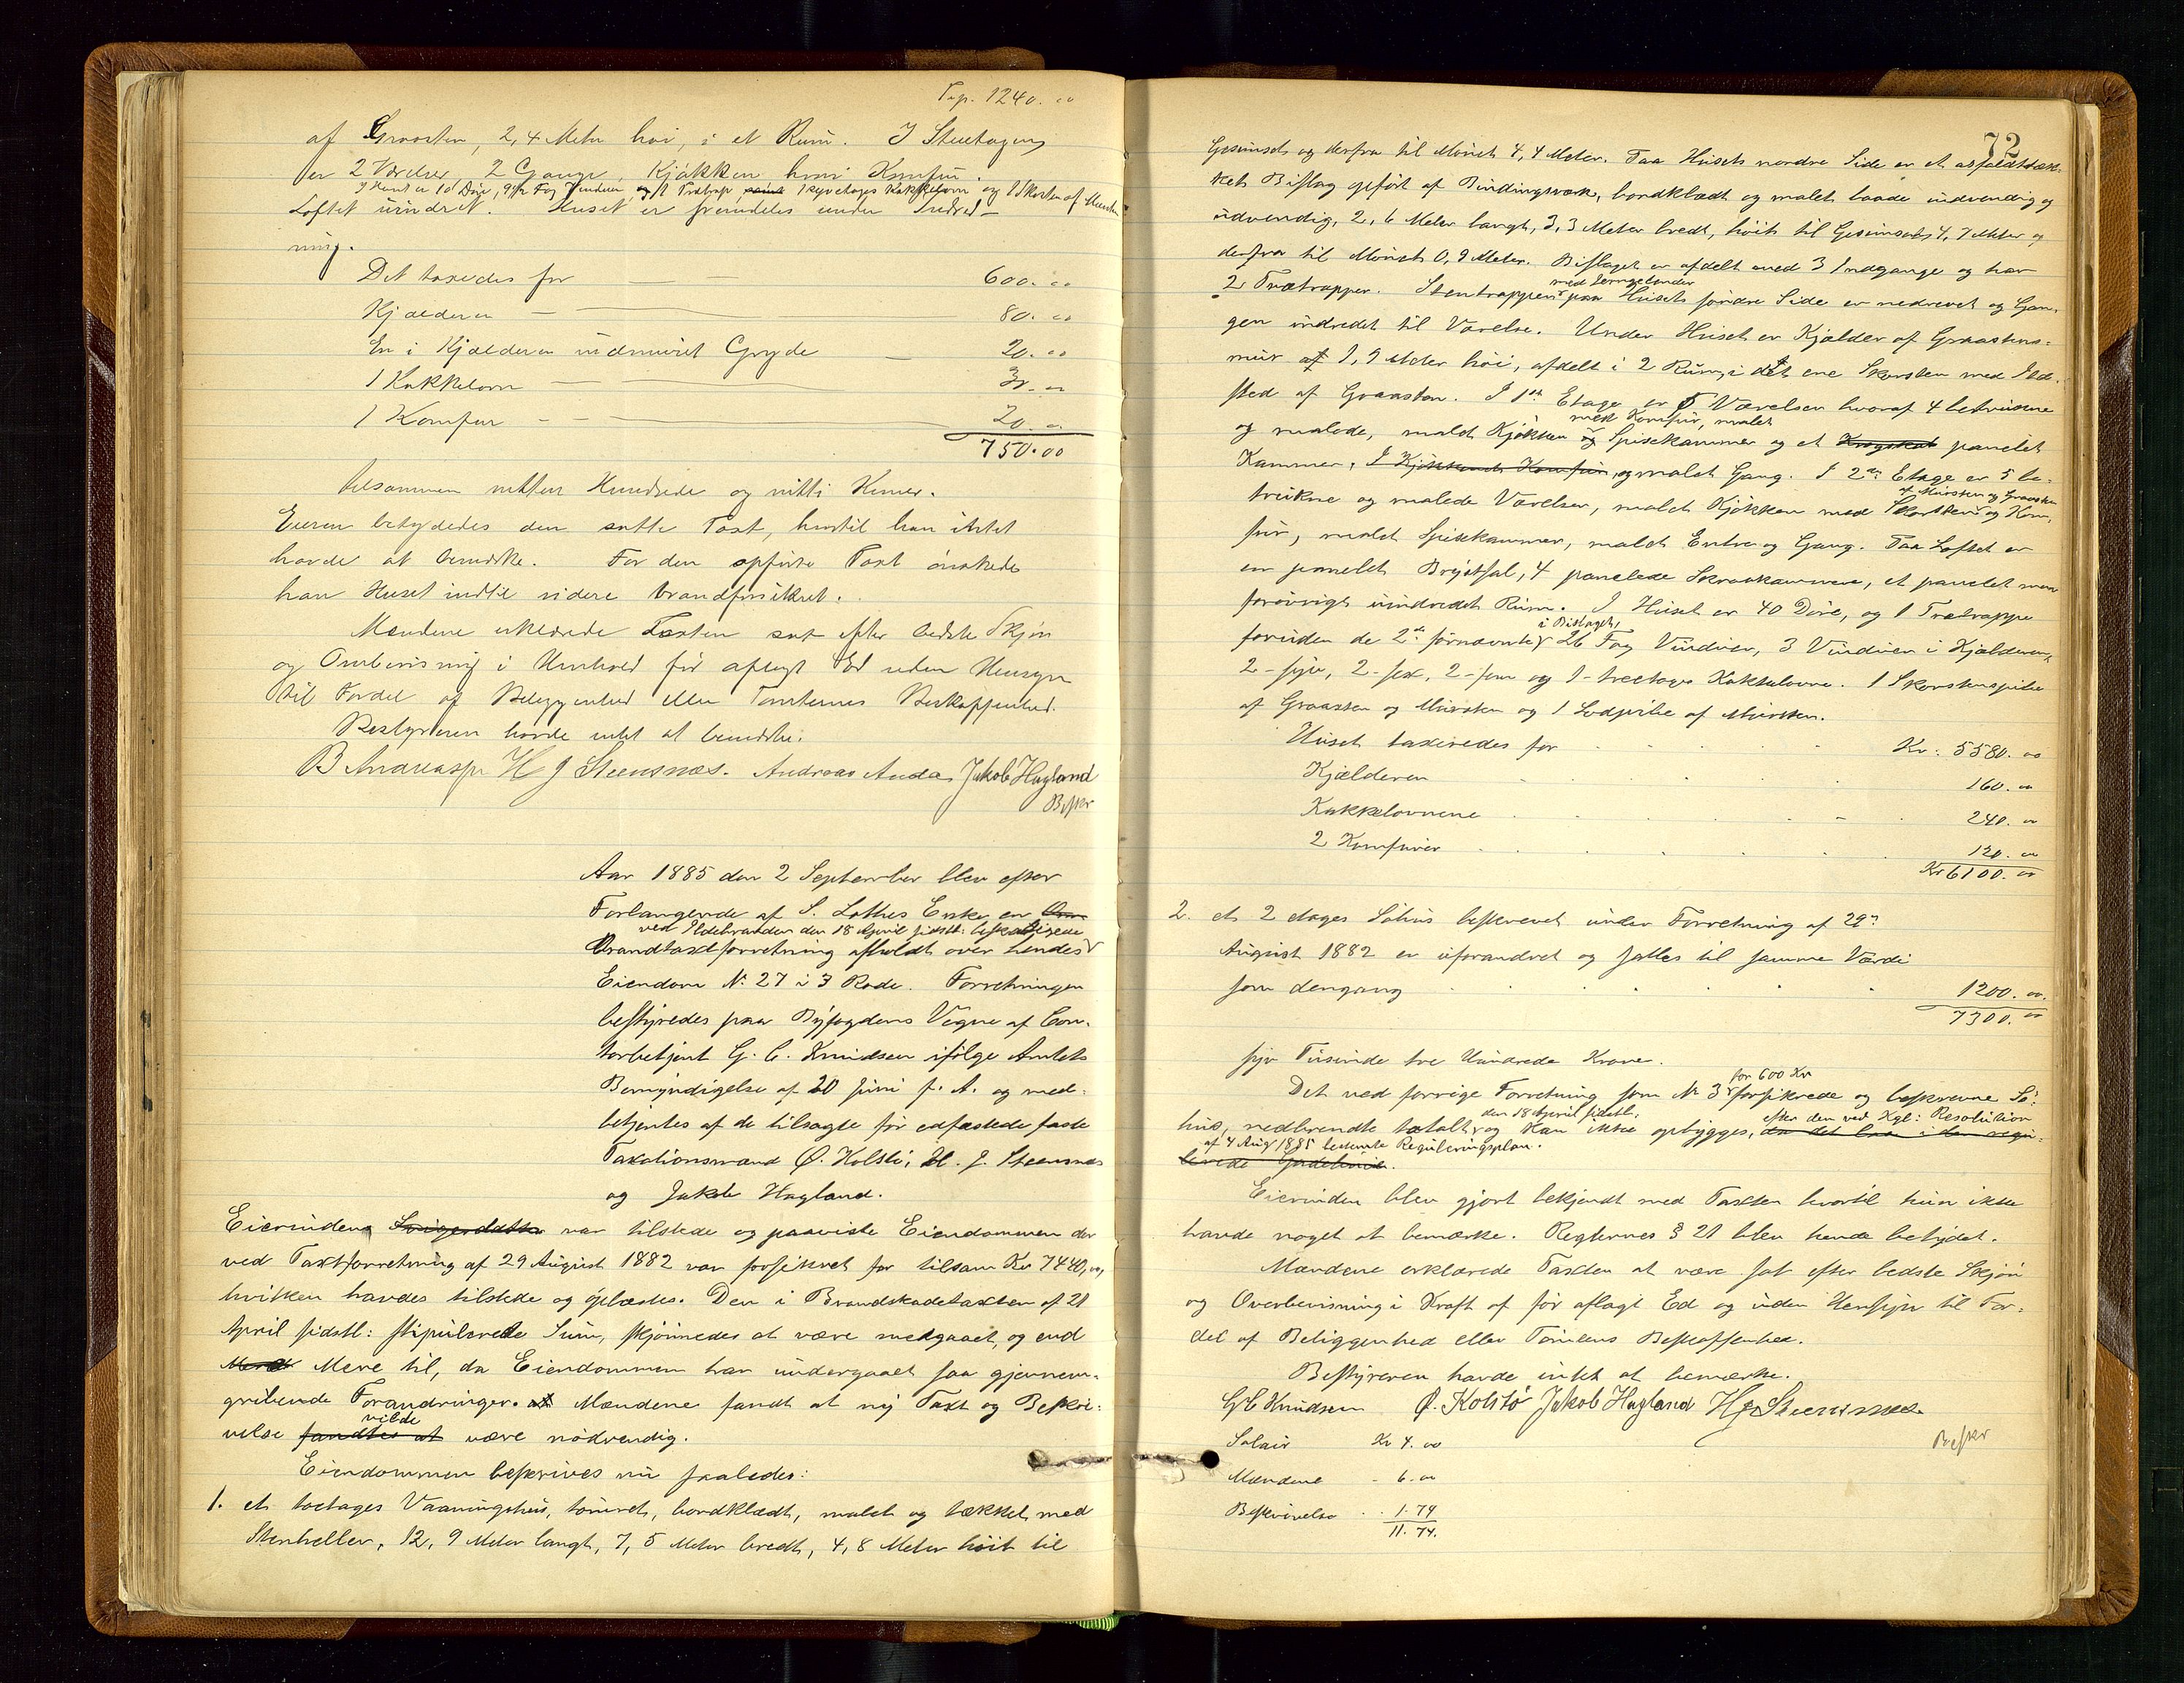 Trp. 1240.00
af Graasten, 2,4 Meter høi, i et Rum. I Stuetagen
er 2 Værelser, 2 Gange, Kjøkken hvori Komfur.
I Huset er 10 Døre, 9 1/2 Fag Vinduer og 1 Trætrap, 1 tyvetages Kakkelovn og 1 Skorsten af Mursten
Loftet uindret. Huset er fremdeles under Indred-
ning.
Det taxeredes for 600.00
Kjælderen 80.00
En i Kjælderen indmuret Gryde 20.00
1 Kakkelovn 30.00
1 Komfur 20.00
750.00
tilsammen nitten Hundrede og nitti Kroner.
Eieren betydedes den satte Taxt, hvortil han intet
havde at bemærke. For den opførte Taxt ønskede
han Huset indtil videre brandforsikret.
Mændene erklærede Taxten sat efter bedste Skjøn
og Overbevisning i Henhold før aflagt Ed uden Hensyn
til Fordel af Beliggenhed eller Tomternes Beskaffenhed.
Bestyreren havde intet at bemærke.
B Andreasen H J Steensnæs. Andreas Anda Jakob Hagland
Beskr
Aar 1885 den 2 September blev efter
Forlangende af S. Lothes Enke en
ved Ildebranden den 18 April sidstl: beskadigede
Brandtaxtforretning afholdt over hendes
Eiendom N: 27 i 3 Rode. Forretningen
bestyredes paa Byfogdens Vegne af Con-
torbetjent G. C. Knudsen ifølge Amtets
Bemyndigelse af 20 Juni f. A. og med-
betjentes af de tilsagte før edfæstede faste
Taxationsmænd Ø. Kolstø, H. J. Steensnæs
og Jakob Hagland.
Eierinden Svigerdatter var tilstede og paaviste Eiendommen der
ved Taxtforretning af 29 August 1882 var forsikret for tilsam Kr 7440,00,
hvilken havdes tilstede og oplæstes. Den i Brandskadetaxten af 21
April sidstl: stipulerede Sum, skjønnedes at være medgaaet, og end
Mere til, da Eiendommen har undergaaet saa gjennem-
gribende Forandringer. at Mændene fandt at ny Taxt og Beskri-
vilde
velse fandtes at være nødvendig.
Eiendommen beskrives nu saaledes:
1. et toetages Vaaningshus, tømret, bordklædt, malet og tækket med
Stenheller, 12,9 Meter langt, 7,5 Meter bredt, 4,8 Meter høit til
72
Gesimset og derfra til Mønet 4,4 Meter. Paa Husets nordre Side er et asfaltdæk-
ket Bislag opført af Bindingsværk, bordklædt og malet baade indvendig og
udvendig, 2,6 Meter langt, 3,3 Meter bredt, høit til Gesimset, 4,7 Meter og
derfra til Mønet 0,9 Meter. Bislaget er afdelt med 3 Indgange og har
med Jerngelænder
2 Trætrapper. Stentrappen paa Husets søndre Side er nedrevet og Gan-
gen indredet til Værelse. Under Huset er Kjælder af Graastens-
mur af 1,9 Meter høi, afdelt i 2 Rum, i det ene Skorsten med Ild-
sted af Graasten. I 1ste Etage er 5 Værelser hvoraf 4 betrukne
med Komfur, malet
og malede, malet Kjøkken og Spisekammer og et panelet
Kammer. I Kjøkkenet Komfur, og malet Gang. I 2den Etage er 5 be-
af Mursten og Graasten
trukne og malede Værelser, malet Kjøkken med Skorsten og Kom-
fur, malet Spisekammer, malet Entre og Gang. Paa Loftet er
en panelet Brystsal, 4 panelede Skraakammere, et panelet men
forøvrigt uindredet Rum. I Huset er 40 Døre, og 1 Trætrappe
i Bislaget,
foruden de 2de førnævnte 26 Fag Vinduer, 3 Vinduer i Kjælderen,
2-syv, 2-sex, 2-fem og 1-treetages Kakkelovne. 1 Skorstenspibe
af Graasten og Mursten og 1 Lodpibe af Mursten.
Huset taxeredes for Kr: 5580.00
Kjælderen 160.00
Kakkelovnene 240.00
2 Komfurer 120.00
Kr 6100.00
2. et 2 etages Søhus beskrevet under Forretning af 29de
August 1882 er uforandret og sattes til samme Værdi
som dengang 1200.00
7300.00
syv Tusinde tre Hundrede Kroner.
for 600 Kr
Det ved forrige Forretning som N: 3 forsikrede og beskrevne Sø-
den 18 April sidstl. efter den ved Kgl: Resolution
hus, nedbrændte totalt og kan ikke opbygges, da det laa i den regu-
af 4 Aug 1885 bestemte Reguleringsplan.
lerede Gadelinie.
Eierinden blev gjort bekjendt med Taxten hvortil hun ikke
havde noget at bemærke. Reglernes § 21 blev hende betydet.
Mændene erklærede Taxten at være sat efter bedste Skjøn
og Overbevisning i Kraft af før aflagt Ed og uden Hensyn til For-
del af Beliggenhed eller Tomtens Beskaffenhed.
Bestyreren havde intet at bemærke.
G C Knudsen Ø. Kolstø Jakob Hagland H J Steensnæs.
Beskr
Salair Kr 4.00
Mændene - 6.00
Beskrivelse 1.74
11.74.